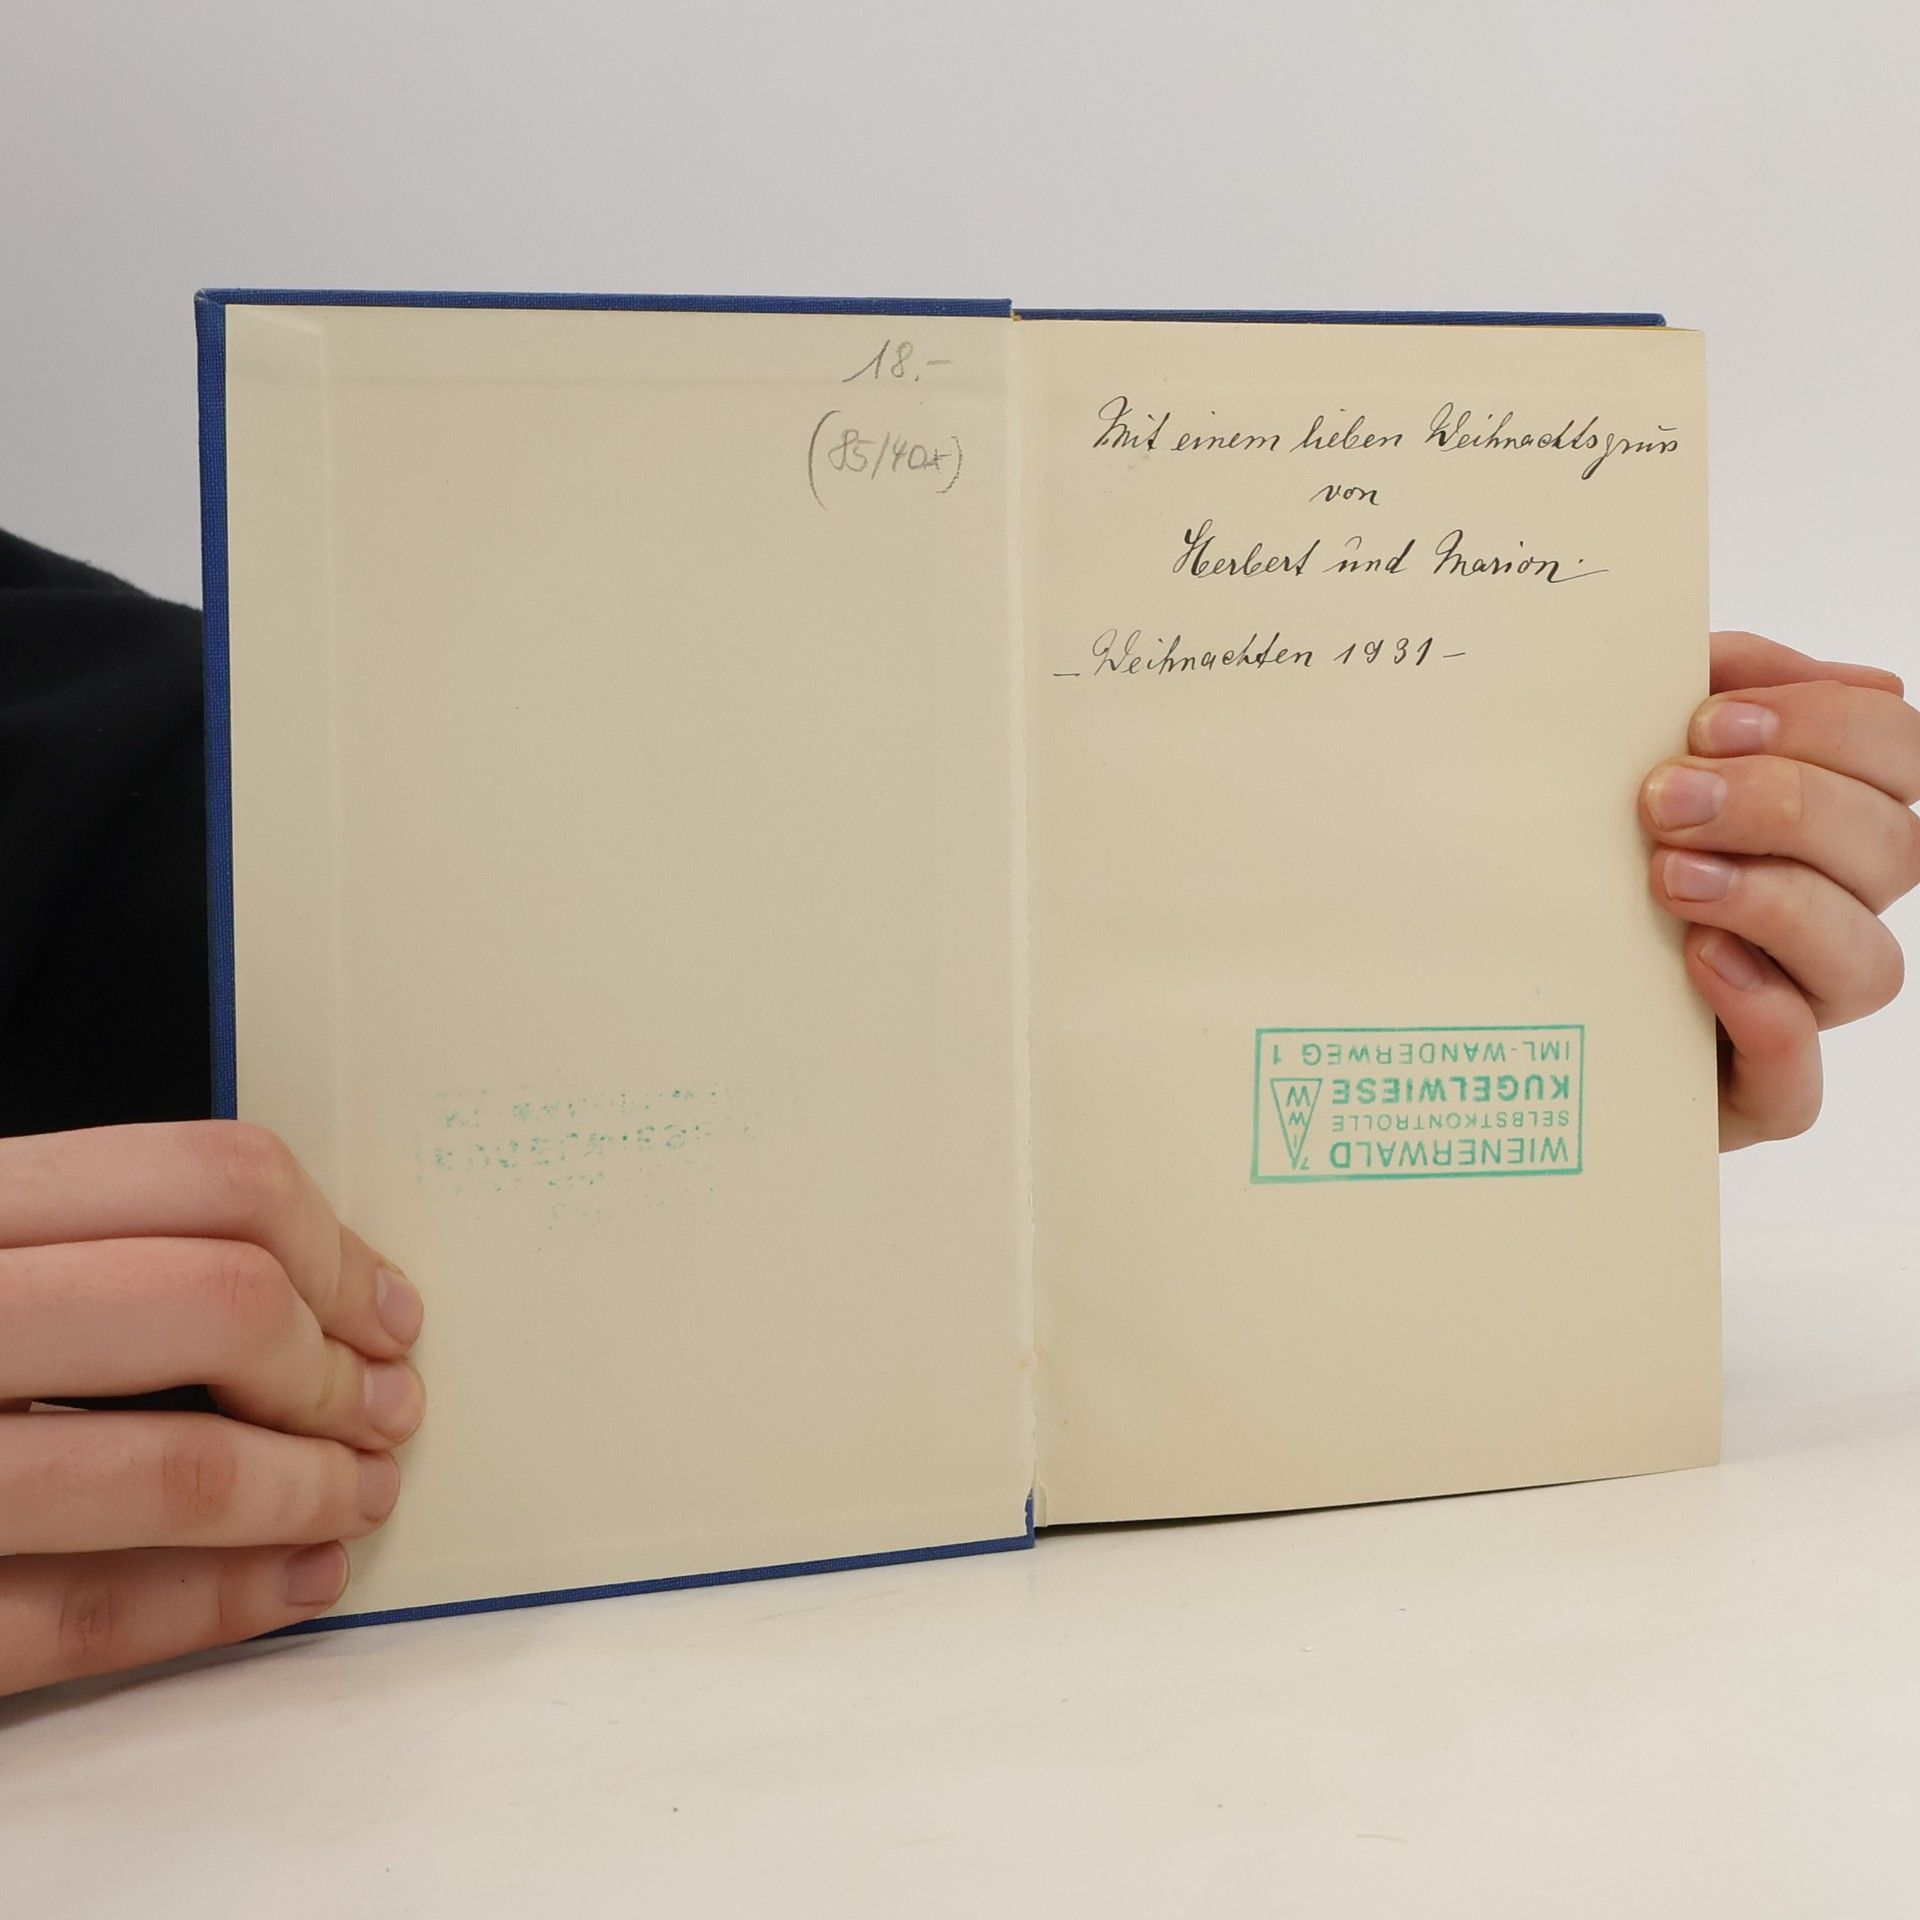 18.-
(85/40
Mit einem lieben Weihnachtsgruss
von
Herbert und Marion.
– Weihnachten 1931 –
WIENERWALD
SELBSTKONTROLLE
KUGELWIESE
IML-WANDERWEG 1
W
W